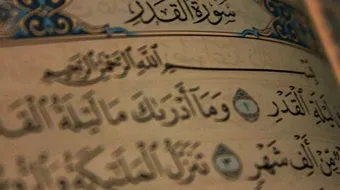 سُورَةُ القَدْرِ
بِسْمِ اللَّهِ الرَّحْمَٰنِ الرَّحِيمِ
لَيْلَةِ الْقَدْرِ ١ وَمَا أَدْرَىٰكَ مَا لَيْلَةُ الْقَ
مِّنْ أَلْفِ شَهْرٍ ٣ تَنَزَّلُ الْمَلَٰٓئِكَةُ وَ